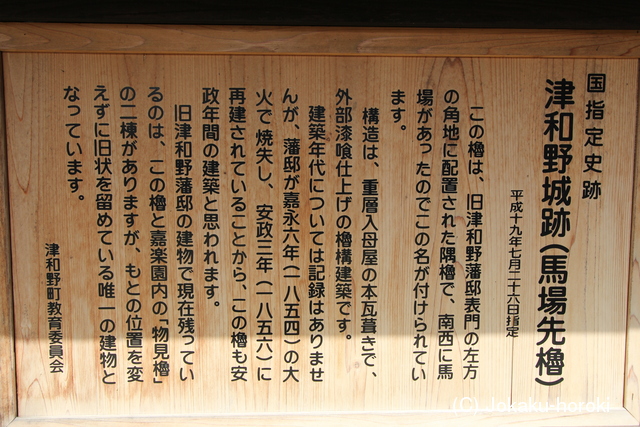 国指定史跡
津和野城跡(馬場先櫓)
平成十九年七月二十六日指定
この櫓は、旧津和野藩邸表門の左方
の角地に配置された隅櫓で、南西に馬
場があったのでこの名が付けられてい
ます。
構造は、重層入母屋の本瓦葺きで、
外部漆喰仕上げの櫓構建築です。
建築年代については記録はありませ
んが、藩邸が嘉永六年(一八五四)の大
火で焼失し、安政三年(一八五六)に
再建されていることから、この櫓も安
政年間の建築と思われます。
旧津和野藩邸の建物で現在残ってい
るのは、この櫓と嘉楽園内の「物見櫓」
の二棟がありますが、もとの位置を変
えずに旧状を留めている唯一の建物と
なっています。
津和野町教育委員会
(C) Jokaku-horoki